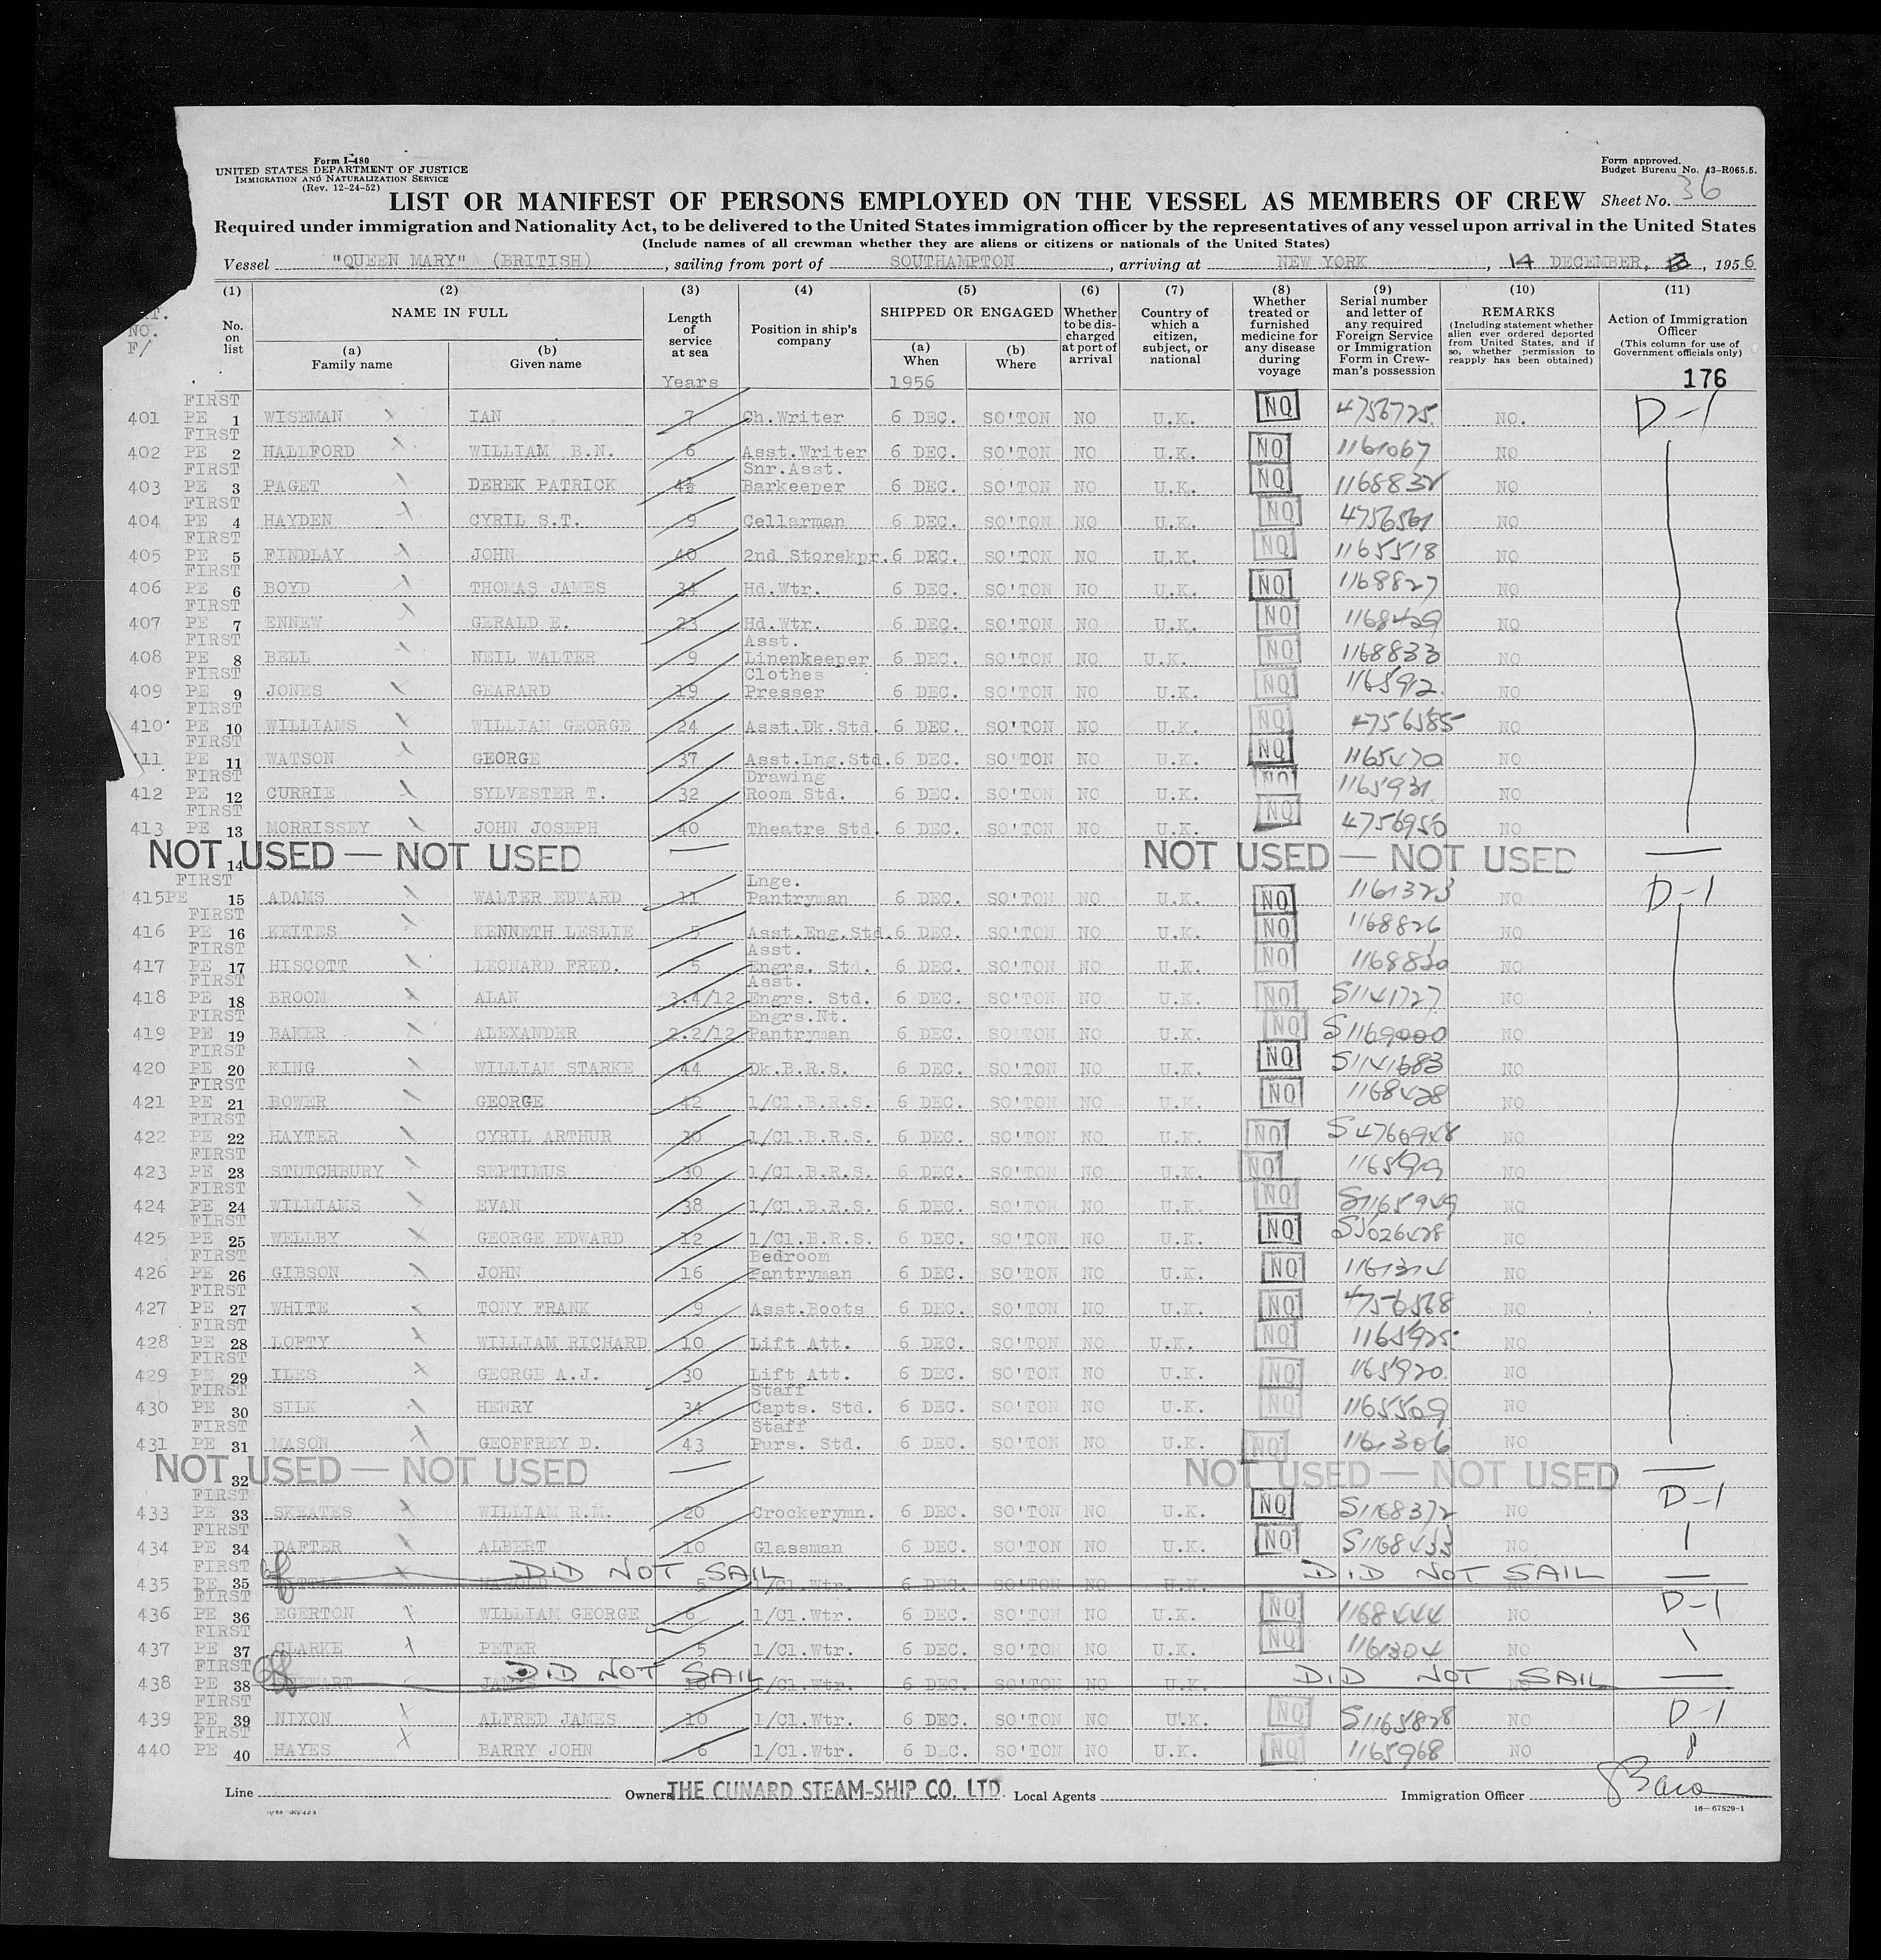 Form I-480
UNITED STATES DEPARTMENT OF JUSTICE
IMMIGRATION AND NATURALIZATION SERVICE
(Rev. 12-24-52)
Form approved.
Budget Bureau No. 43-R065.5.
LIST OR MANIFEST OF PERSONS EMPLOYED ON THE VESSEL AS MEMBERS OF CREW Sheet No. 36
Required under immigration and Nationality Act, to be delivered to the United States immigration officer by the representatives of any vessel upon arrival in the United States
(Include names of all crewman whether they are aliens or citizens or nationals of the United States)
Vessel "QUEEN MARY" (BRITISH), sailing from port of SOUTHAMPTON, arriving at NEW YORK, 14 DECEMBER, 1956
(1) (2) (3) (4) (5) (6) (7) (8) (9) (10) (11)
No. on list
NAME IN FULL
(a) Family name
(b) Given name
Length of service at sea
Years
Position in ship's company
SHIPPED OR ENGAGED
(a) When
1956
(b) Where
Whether to be discharged at port of arrival
Country of which a citizen, subject, or national
Whether treated or furnished medicine for any disease during voyage
Serial number and letter of any required Foreign Service or Immigration Form in Crewman's possession
REMARKS
(Including statement whether alien ever ordered deported from United States, and if so, whether permission to reapply has been obtained)
Action of Immigration Officer
(This column for use of Government officials only)
176
NO.
F/
401 FIRST PE 1 WISEMAN IAN 7 Ch.Writer 6 DEC. SO'TON NO U.K. NO 4756725 NO. D-1
402 FIRST PE 2 HALLFORD WILLIAM B.N. 6 Asst.Writer 6 DEC. SO'TON NO U.K. NO 1161067 NO
403 FIRST PE 3 PAGET DEREK PATRICK 4½ Snr.Asst. Barkeeper 6 DEC. SO'TON NO U.K. NO NO
404 FIRST PE 4 HAYDEN CYRIL S.T. 9 Cellarman 6 DEC. SO'TON NO U.K. NO 4756561 NO
405 FIRST PE 5 FINDLAY JOHN 40 2nd Storekpr. 6 DEC. SO'TON NO U.K. NO 1165518 NO
406 FIRST PE 6 BOYD THOMAS JAMES 34 Hd.Wtr. 6 DEC. SO'TON NO U.K. NO 1168827 NO
407 FIRST PE 7 ENNEW GERALD E. 23 Hd.Wtr. 6 DEC. SO'TON NO U.K. NO 1168429 NO
408 FIRST PE 8 BELL NEIL WALTER 9 Asst. Linenkeeper 6 DEC. SO'TON NO U.K. NO 1168833 NO
409 FIRST PE 9 JONES GEARARD 19 Clothes Presser 6 DEC. SO'TON NO U.K. NO 1165912 NO
410 FIRST PE 10 WILLIAMS WILLIAM GEORGE 24 Asst.Dk.Std. 6 DEC. SO'TON NO U.K. NO 4756585 NO
411 FIRST PE 11 WATSON GEORGE 37 Asst.Lng.Std. 6 DEC. SO'TON NO U.K. NO 1165470 NO
412 FIRST PE 12 CURRIE SYLVESTER T. 32 Drawing Room Std. 6 DEC. SO'TON NO U.K. NO 1165931 NO
413 FIRST PE 13 MORRISSEY JOHN JOSEPH 40 Theatre Std. 6 DEC. SO'TON NO U.K. NO 4756950 NO
14 NOT USED — NOT USED NOT USED — NOT USED
415 FIRST PE 15 ADAMS WALTER EDWARD 11 Lnge. Pantryman 6 DEC. SO'TON NO U.K. NO 1161323 NO D-1
416 FIRST PE 16 KEITES KENNETH LESLIE 5 Asst.Eng.Std. 6 DEC. SO'TON NO U.K. NO 1168826 NO
417 FIRST PE 17 HISCOTT LEONARD FRED. 5 Asst. Engrs. Std. 6 DEC. SO'TON NO U.K. NO 1168830 NO
418 FIRST PE 18 BROOM ALAN 3.4/12 Asst. Engrs. Std. 6 DEC. SO'TON NO U.K. NO S1141727 NO
419 FIRST PE 19 BAKER ALEXANDER 2.2/12 Engrs.Nt. Pantryman 6 DEC. SO'TON NO U.K. NO S1169000 NO
420 FIRST PE 20 KING WILLIAM STARKE 44 Dk.B.R.S. 6 DEC. SO'TON NO U.K. NO S1141683 NO
421 FIRST PE 21 BOWER GEORGE 42 1/Cl.B.R.S. 6 DEC. SO'TON NO U.K. NO 1168428 NO
422 FIRST PE 22 HAYTER CYRIL ARTHUR 30 1/Cl.B.R.S. 6 DEC. SO'TON NO U.K. NO S4766948 NO
423 FIRST PE 23 STUTCHBURY SEPTIMUS 30 1/Cl.B.R.S. 6 DEC. SO'TON NO U.K. NO 1165919 NO
424 FIRST PE 24 WILLIAMS EVAN 38 1/Cl.B.R.S. 6 DEC. SO'TON NO U.K. NO S1165949 NO
425 FIRST PE 25 WELLBY GEORGE EDWARD 12 1/Cl.B.R.S. 6 DEC. SO'TON NO U.K. NO NO
426 FIRST PE 26 GIBSON JOHN 16 Bedroom Pantryman 6 DEC. SO'TON NO U.K. NO 1161314 NO
427 FIRST PE 27 WHITE TONY FRANK 9 Asst.Boots 6 DEC. SO'TON NO U.K. NO 4756568 NO
428 FIRST PE 28 LOFTY WILLIAM RICHARD 10 Lift Att. 6 DEC. SO'TON NO U.K. NO 1165925 NO
429 FIRST PE 29 ILES GEORGE A.J. 30 Lift Att. 6 DEC. SO'TON NO U.K. NO 1165920 NO
430 FIRST PE 30 SILK HENRY 34 Staff Capts. Std. 6 DEC. SO'TON NO U.K. NO 1165509 NO
431 FIRST PE 31 MASON GEOFFREY D. 43 Staff Purs. Std. 6 DEC. SO'TON NO U.K. NO 1161306 NO
32 NOT USED — NOT USED NOT USED — NOT USED
433 FIRST PE 33 SKEATES WILLIAM R.M. 20 Crockerymn. 6 DEC. SO'TON NO U.K. NO S1168372 NO D-1
434 FIRST PE 34 DAFTER ALBERT 10 Glassman 6 DEC. SO'TON NO U.K. NO S1168433 NO
435 FIRST PE 35 DID NOT SAIL 5 1/Cl.Wtr. 6 DEC. SO'TON NO U.K. DID NOT SAIL
436 FIRST PE 36 EGERTON WILLIAM GEORGE 6 1/Cl.Wtr. 6 DEC. SO'TON NO U.K. NO 1168444 NO D-1
437 FIRST PE 37 CLARKE PETER 5 1/Cl.Wtr. 6 DEC. SO'TON NO U.K. NO 1161304 NO
438 FIRST PE 38 DID NOT SAIL 1/Cl.Wtr. 6 DEC. SO'TON NO U.K. DID NOT SAIL
439 FIRST PE 39 NIXON ALFRED JAMES 10 1/Cl.Wtr. 6 DEC. SO'TON NO U.K. NO S1165828 NO D-1
440 FIRST PE 40 HAYES BARRY JOHN 6 1/Cl.Wtr. 6 DEC. SO'TON NO U.K. NO 1165968 NO
Line Owners THE CUNARD STEAM-SHIP CO. LTD. Local Agents Immigration Officer
16—67529-1